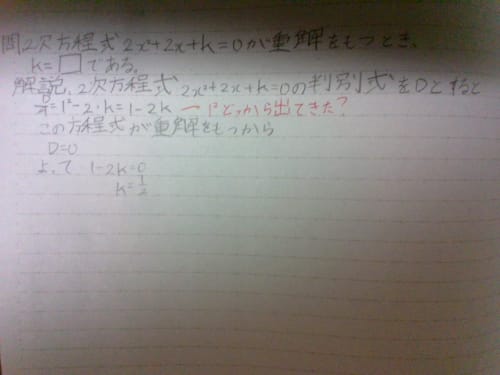 問2次方程式2x²+2x+k=0が重解をもつとき、
k=□である。
解説、2次方程式2x²+2x+k=0の判別式をDとすると
D/4=1²-2・k=1-2k ー1²どっから出てきた?
この方程式が重解をもつから
D=0
よって 1-2k=0
k=1/2